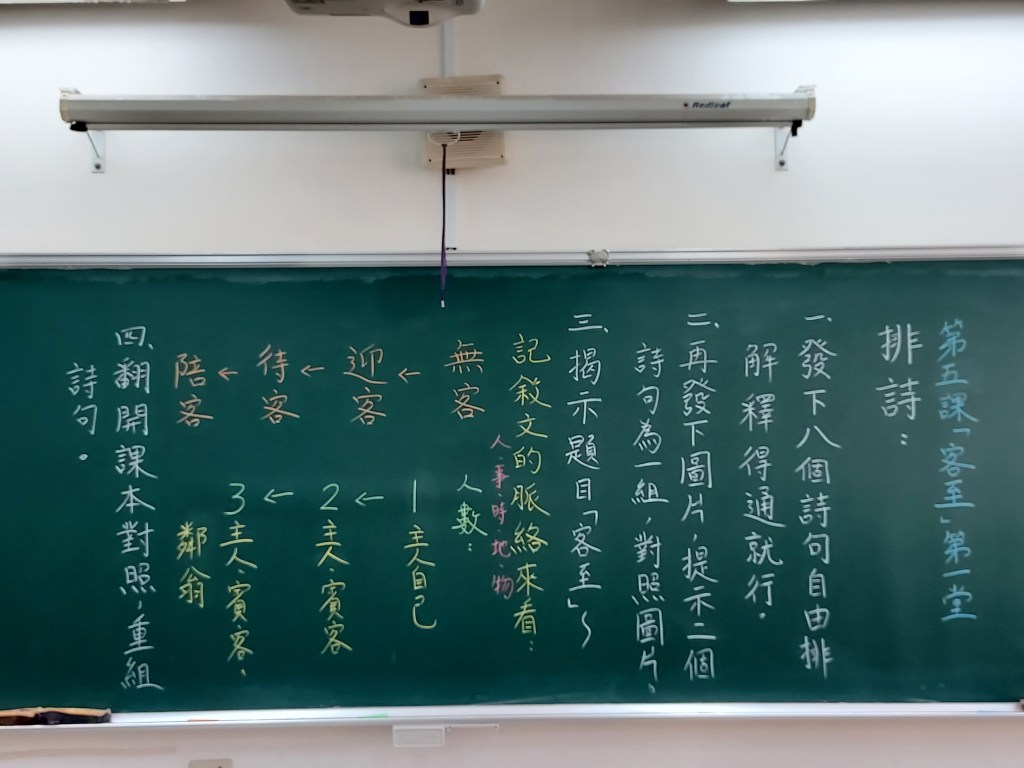 Redleaf
第五課「客至」第一堂
排詩：
一、發下八個詩句自由排
解釋得通就行。
二、再發下圖片，提示二個
詩句為一組，對照圖片。
三、揭示題目「客至」～
記敘文的脈絡來看：
人、事、時、地、物
無客←迎客←待客←陪客
人數：
1主人自己
←2主人、賓客
←3主人、賓客、
鄰翁
四、翻開課本對照，重組
詩句。